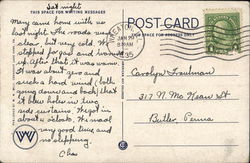 Sat night
THIS SPACE FOR WRITING MESSAGES
Mary came home with us
last night. The roads were
clear, but very cold. We
stopped for gas and
up. After that it was warm.
It was about zero and
such a head wind (both
going down and back) that
it blew holes in
side curtains. We got in
about 12 o'clock. Was most
very good time and
no slipping.
Chas
POST CARD
THIS SPACE FOR ADDRESS ONLY
JAN 20
8 30 AM
1935
Carolyn Troutman
317 N. Mc Kean St
Butler, Penna